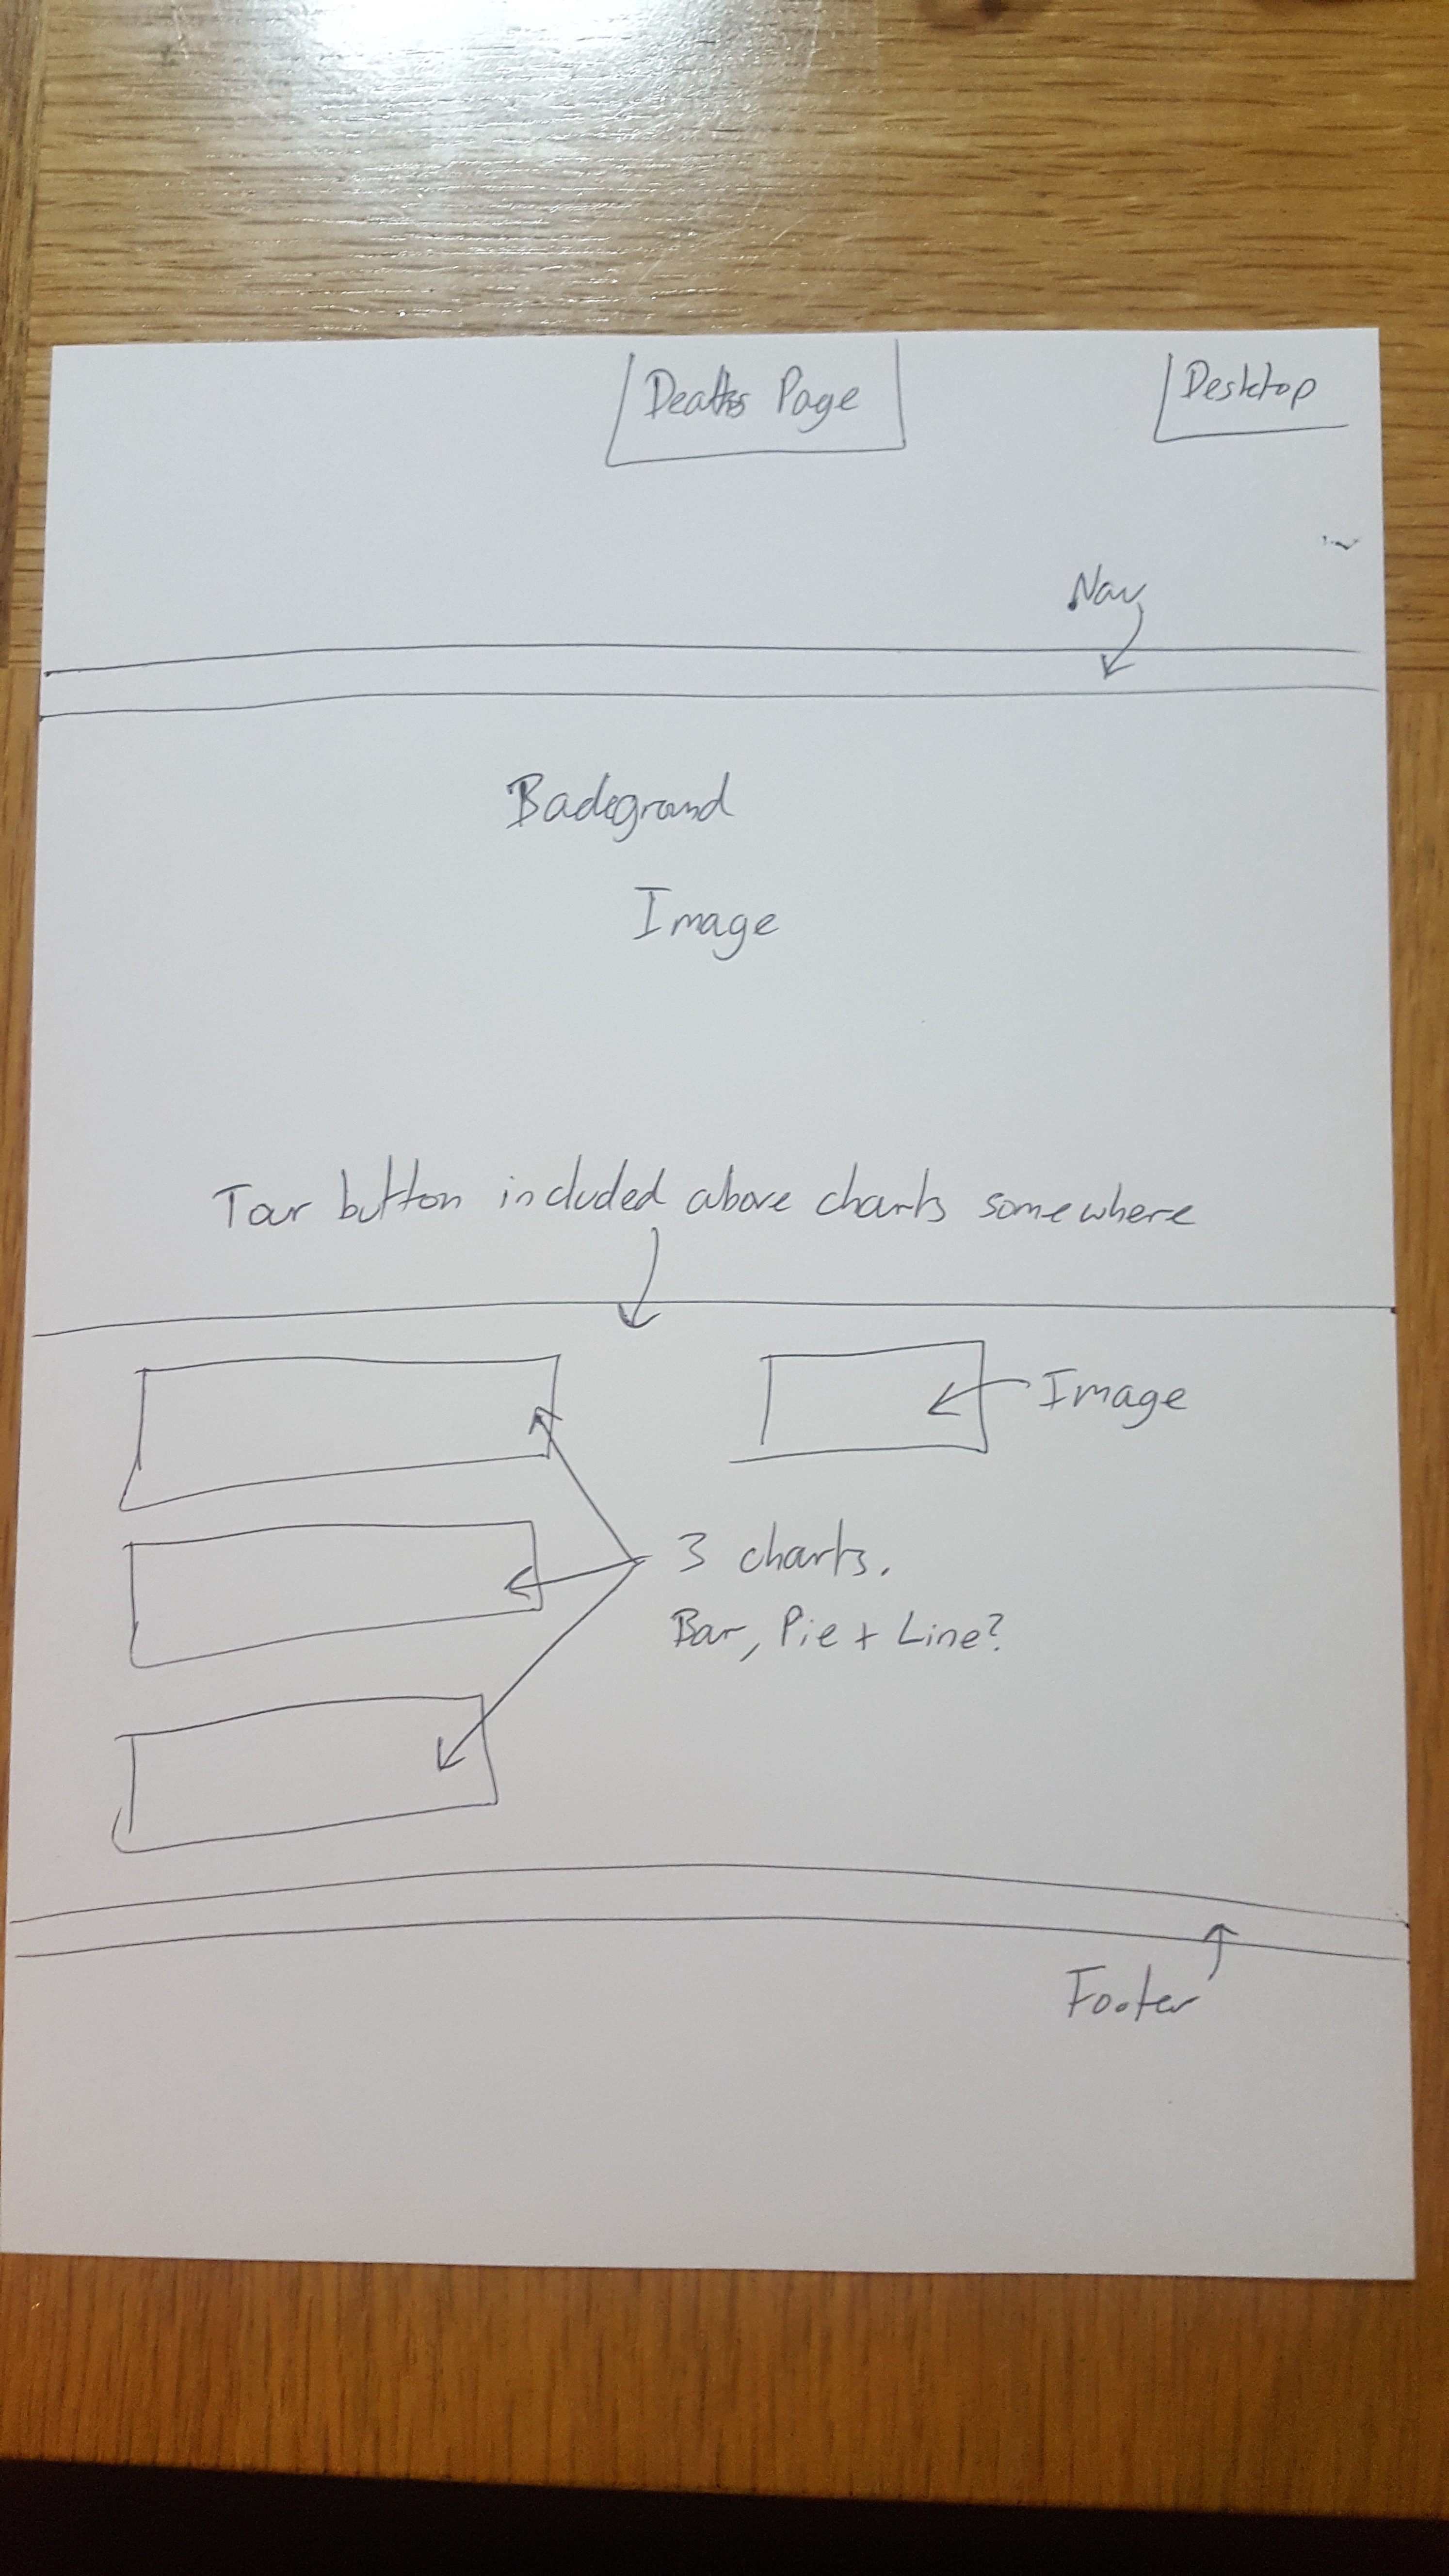 Deaths Page
Desktop
Nav
Background
Image
Tour button included above charts somewhere
Image
3 charts.
Bar, Pie + Line?
Footer